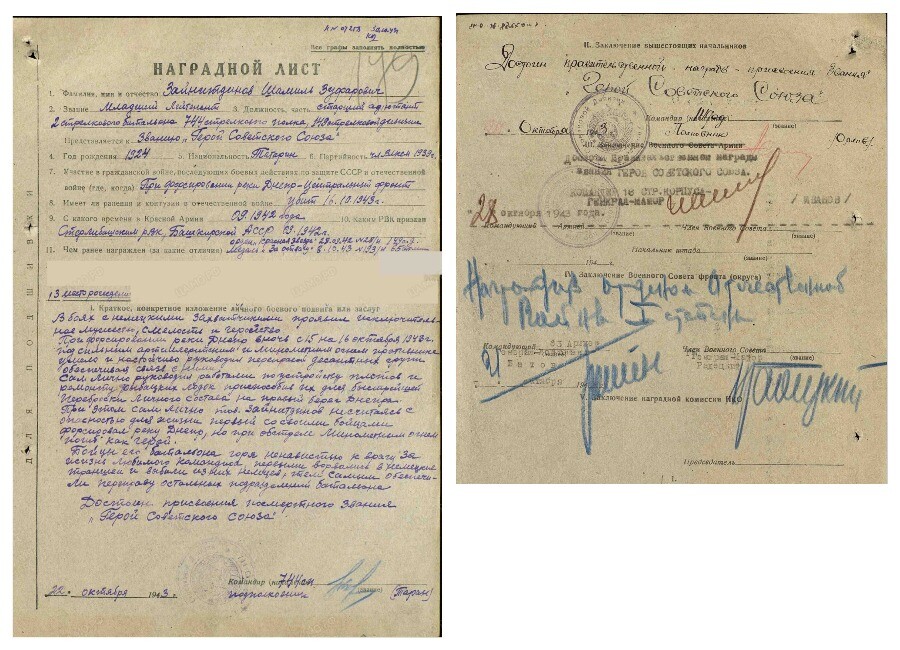 Все графы заполнять полностью
НАГРАДНОЙ ЛИСТ
1. Фамилия, имя и отчество Зайнутдинов Шамиль Зухарович
2. Звание Младший Лейтенант 3. Должность, часть старший адъютант
2 стрелкового батальона 744 стрелкового полка, 149 стрелковой дивизии
Представляется к Званию „Герой Советского Союза"
4. Год рождения 1924 5. Национальность Татарин 6. Партийность
7. Участие в гражданской войне, последующих боевых действиях по защите СССР и отечественной
войне (где, когда) При форсировании реки Днепр-Центральный фронт
8. Имеет ли ранения и контузии в отечественной войне убит 16.10.1943г.
9. С какого времени в Красной Армии 09.1942 года 10. Каким РВК призван
Стерлибашским рвк, Башкирской АССР
11. Чем ранее награжден (за какие отличия)
I. Краткое, конкретное изложение личного боевого подвига или заслуг
В боях с немецкими захватчиками проявил исключитель-
ное мужество, смелость и геройство
При форсировании реки Днепр в ночь с 15 на 16 октября 1943г.
под сильным артиллерийским и минометным огнем противника
умело и настойчиво руководил переправой десантной группы
обеспечивая связь с ними.
Сам лично руководил работами по устройству плотиков и
ремонту рыбацких лодок приспособив их для быстрейшей
переброски личного состава на правый берег Днепра.
При этом сам лично тов. Зайнутдинов несчитаясь с
опасностью для жизни первый со своими бойцами
форсировал реку Днепр, но при обстреле минометным огнем
погиб как герой.
Бойцы его батальона горя ненавистью к врагу за
жизнь любимого командира первыми ворвались в немецкие
траншеи и выбили из них немцев, тем самым обеспечи-
ли переправу остальных подразделений батальона
Достоин присвоения посмертного звания
„Герой Советского Союза".
Командир 744 сп
подполковник (Таран)
22 октября 1943 г.
II. Заключение вышестоящих начальников
Достоин правительственной награды - присвоения звания
„Герой Советского Союза"
Командир
Октября 1943 Полковник
(звание)
III. Заключение Военного Совета Армии
Достоин правительственной награды
звания ГЕРОЙ СОВЕТСКОГО СОЮЗА.
КОМАНДИР 18 СТР. КОРПУСА-
ГЕНЕРАЛ-МАЙОР / ИВАНОВ /
"27" октября 1943 года.
Командующий Член Военного Совета
(звание)
Начальник штаба
(звание)
IV. Заключение Военного Совета фронта (округа)
Наградить орденом Отечественной
Войны I степени
Командующий 65 Армией Член Военного Совета
Генерал-Лейтенант Генерал-Майор
Батов Радецкий
V. Заключение наградной комиссии НКО
Председатель